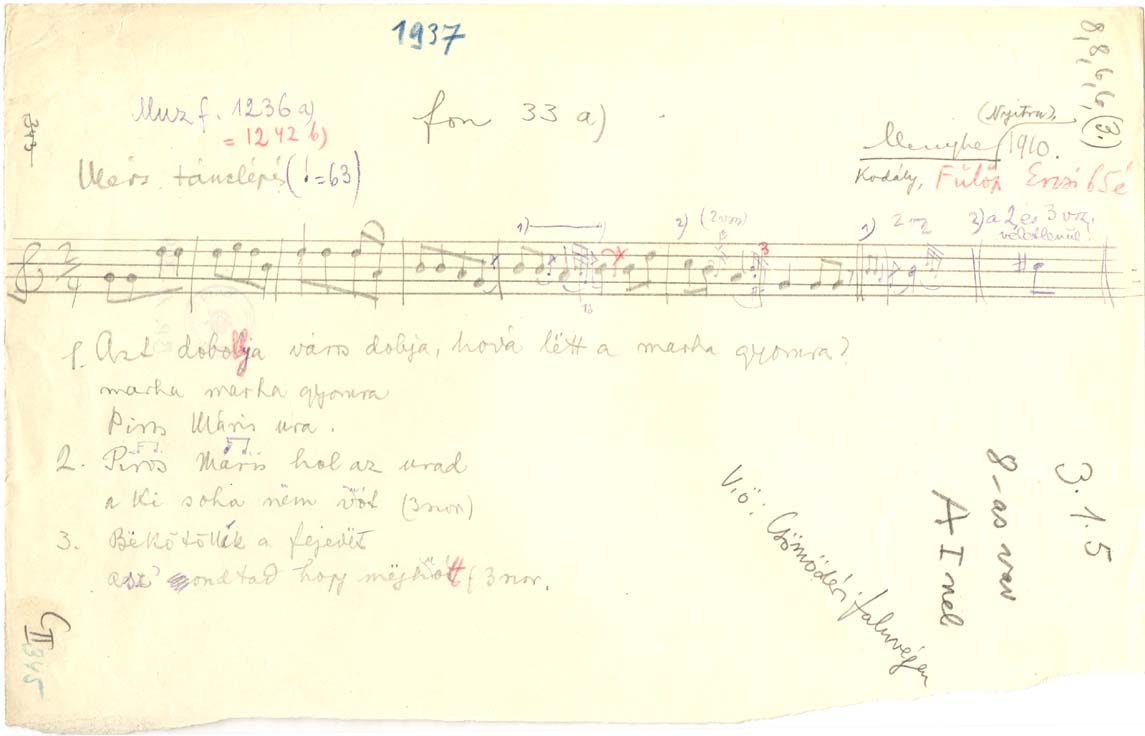 1937
8, 8, 6, 6, (3.)
343
Muz f. 1236 a)
= 1242 b)
fon 33 a)
(Nyitra),
Menyhe 1910.
Kodály, Fülöp Erzsi 65é
tánclépés (♩=63)
1) 2) (2 vrsz) 3 1) 2 vsz 2) a 2 és 3 vsz.
véletlenül.
2/4
13
1. Azt dobolja város dobja, hová lëtt a marha gyomra?
marha marha gyomra
Piros Máris ura.
2. Piros Máris hol az urad
a ki soha nëm vót (3 sor)
3. Bëkötöttík a fejedët
asz' mondtad hogy mëghótt (3 sor.
V.ö: Csömödéri faluvégen
3.1.5
8-as var
A I nél
C II
345